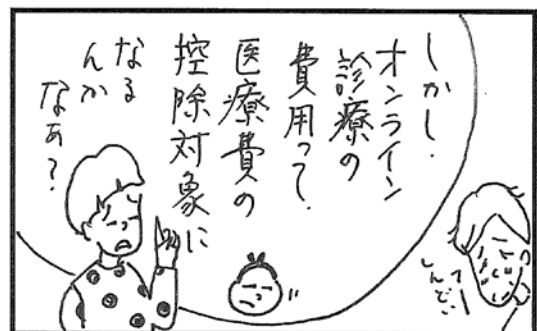 しかし.
オンライン
診療の
費用って.
医療費の
控除対象に
なる
んか
なぁ？
しんどい